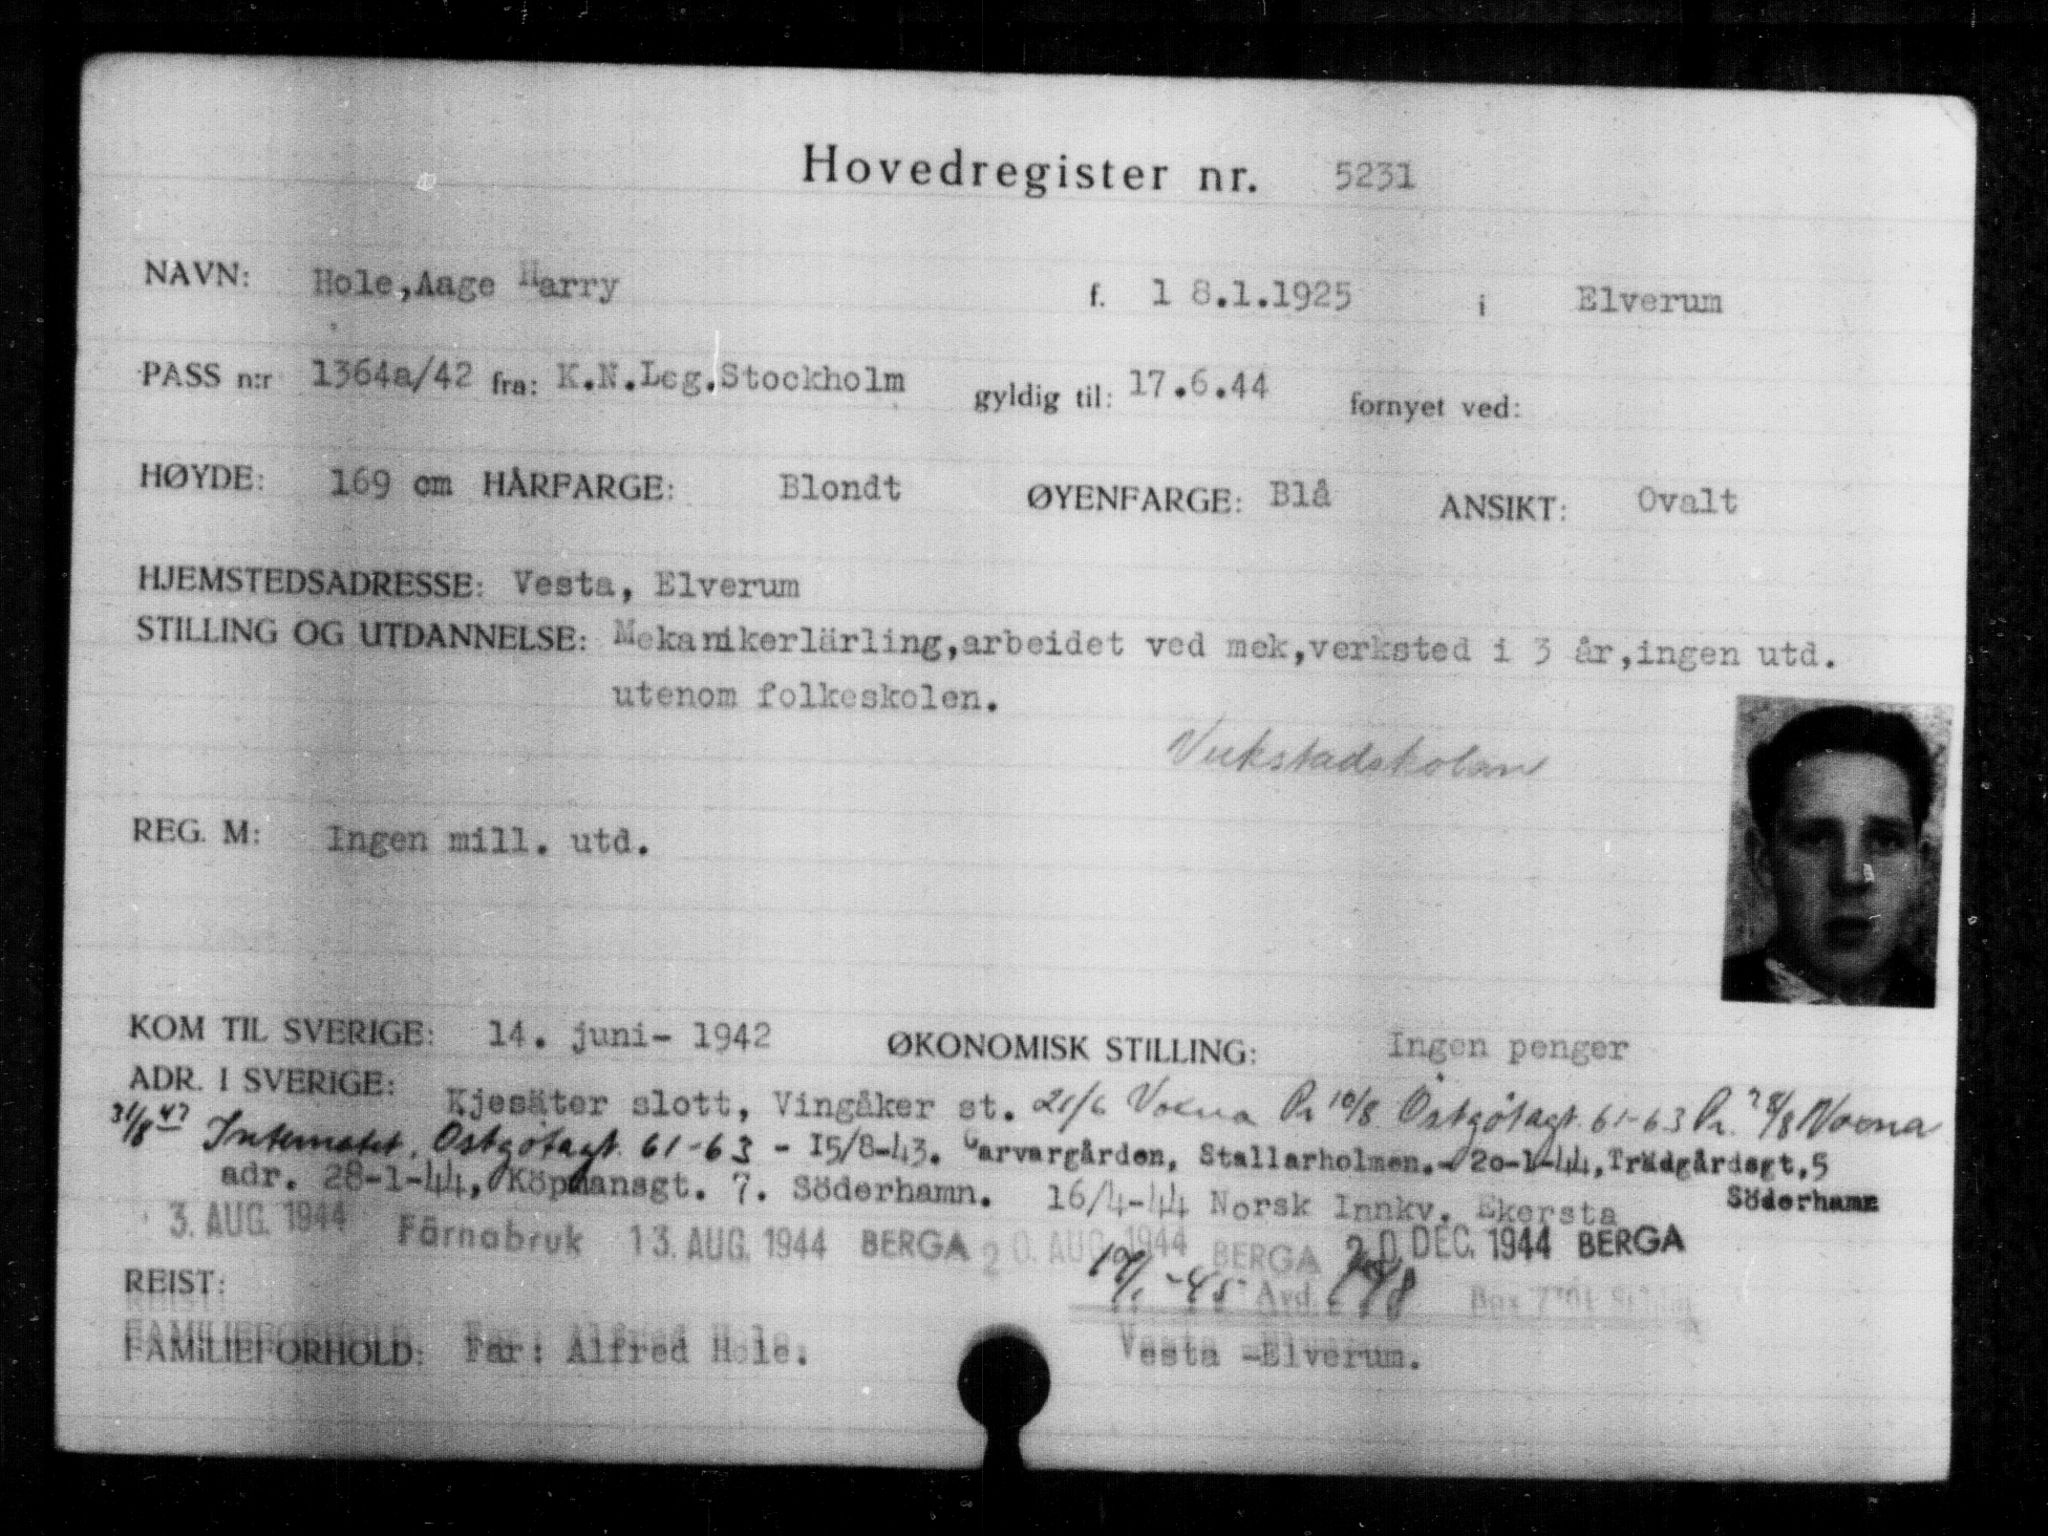 Hovedregister nr. 5231
NAVN: Hole,Aage Harry f. 1 8.1.1925 i Elverum
PASS n:r 1364a/42 fra: K.N.Leg.Stockholm gyldig til: 17.6.44 fornyet ved:
HØYDE: 169 cm HÅRFARGE: Blondt ØYENFARGE: Blå ANSIKT: Ovalt
HJEMSTEDSADRESSE: Vesta, Elverum
STILLING OG UTDANNELSE: Mekanikerlärling,arbeidet ved mek,verksted i 3 år,ingen utd.
utenom folkeskolen.
REG. M: Ingen mill. utd.
KOM TIL SVERIGE: 14. juni- 1942 ØKONOMISK STILLING: Ingen penger
ADR. I SVERIGE: Kjesäter slott, Vingåker st. 21/6 Voxna Pr 10/8 Östgötagt. 61-63 Pr. 28/8 Voxna
31/8 Internatet, Östgötagt. 61-63 - 15/8-43. Garvargården, Stallarholmen.- 20-1-44, Trädgårdsgt.5
Söderhamn
adr. 28-1-44, Köpmansgt. 7. Söderhamn. 16/4-44 Norsk Innkv. Ekersta
3. AUG. 1944 Färnabruk 13. AUG. 1944 BERGA 20. AUG. 1944 BERGA 20. DEC. 1944 BERGA
REIST: -45 Avd. Box
FAMILIEFORHOLD: Far: Alfred Hole. Vesta -Elverum.